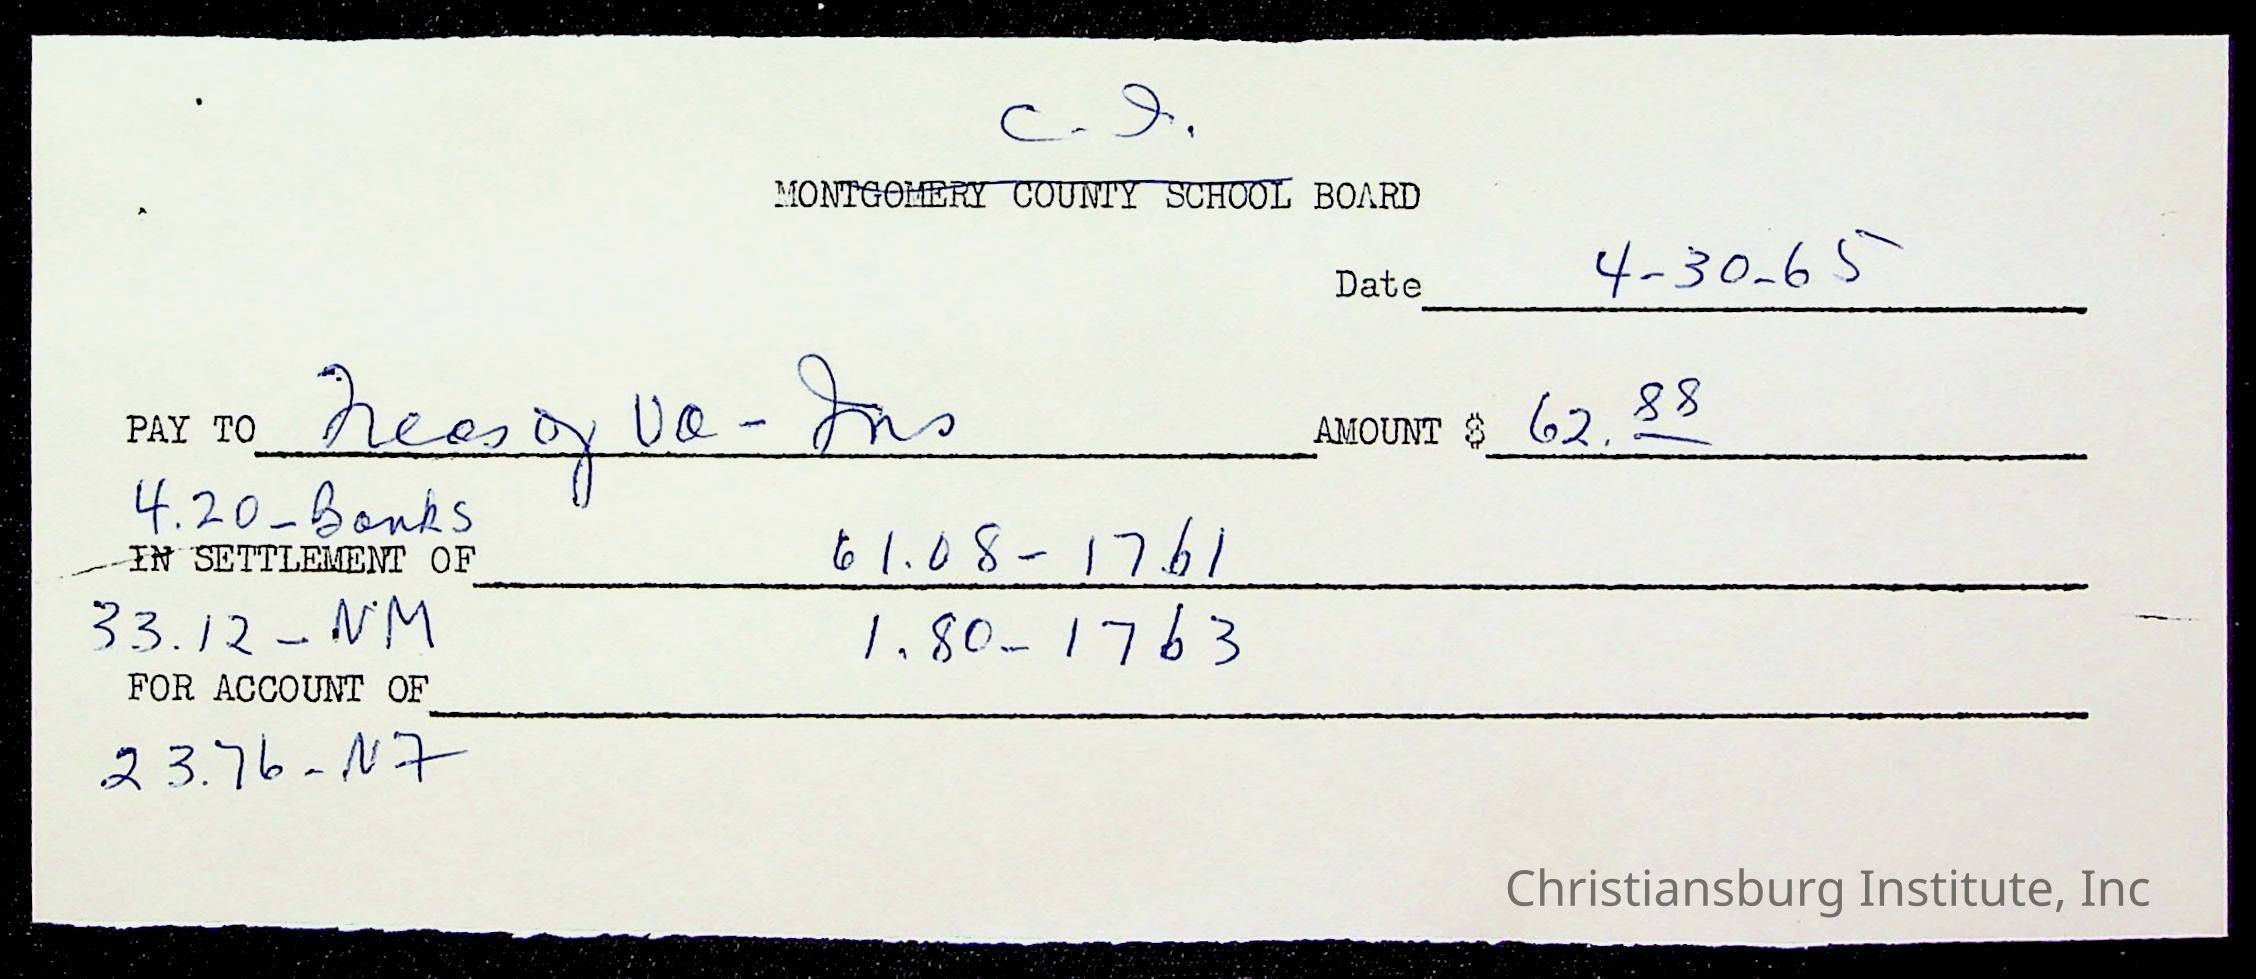 C. I.
MONTGOMERY COUNTY SCHOOL BOARD
Date 4-30-65
PAY TO Treas of Va - Ins AMOUNT $ 62.88
4.20-Banks
IN SETTLEMENT OF 61.08-1761
33.12-NM 1.80-1763
FOR ACCOUNT OF
23.76-NF
Christiansburg Institute, Inc